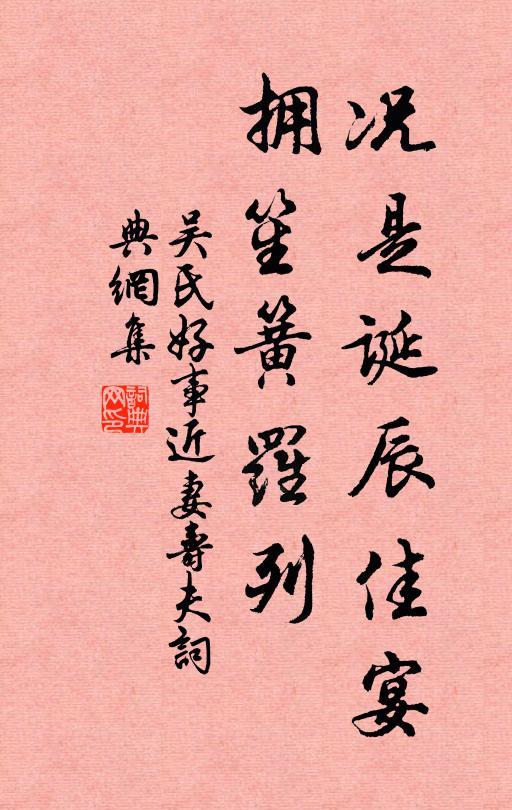 况是誕辰佳宴
拥笙簧羅列
吴氏好事近妻壽夫詞
典網集
詞典
网印